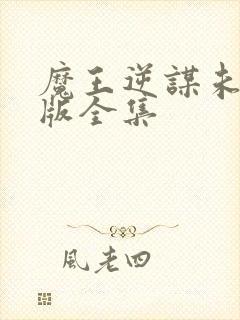 魔王逆謀未
版全集
風老四